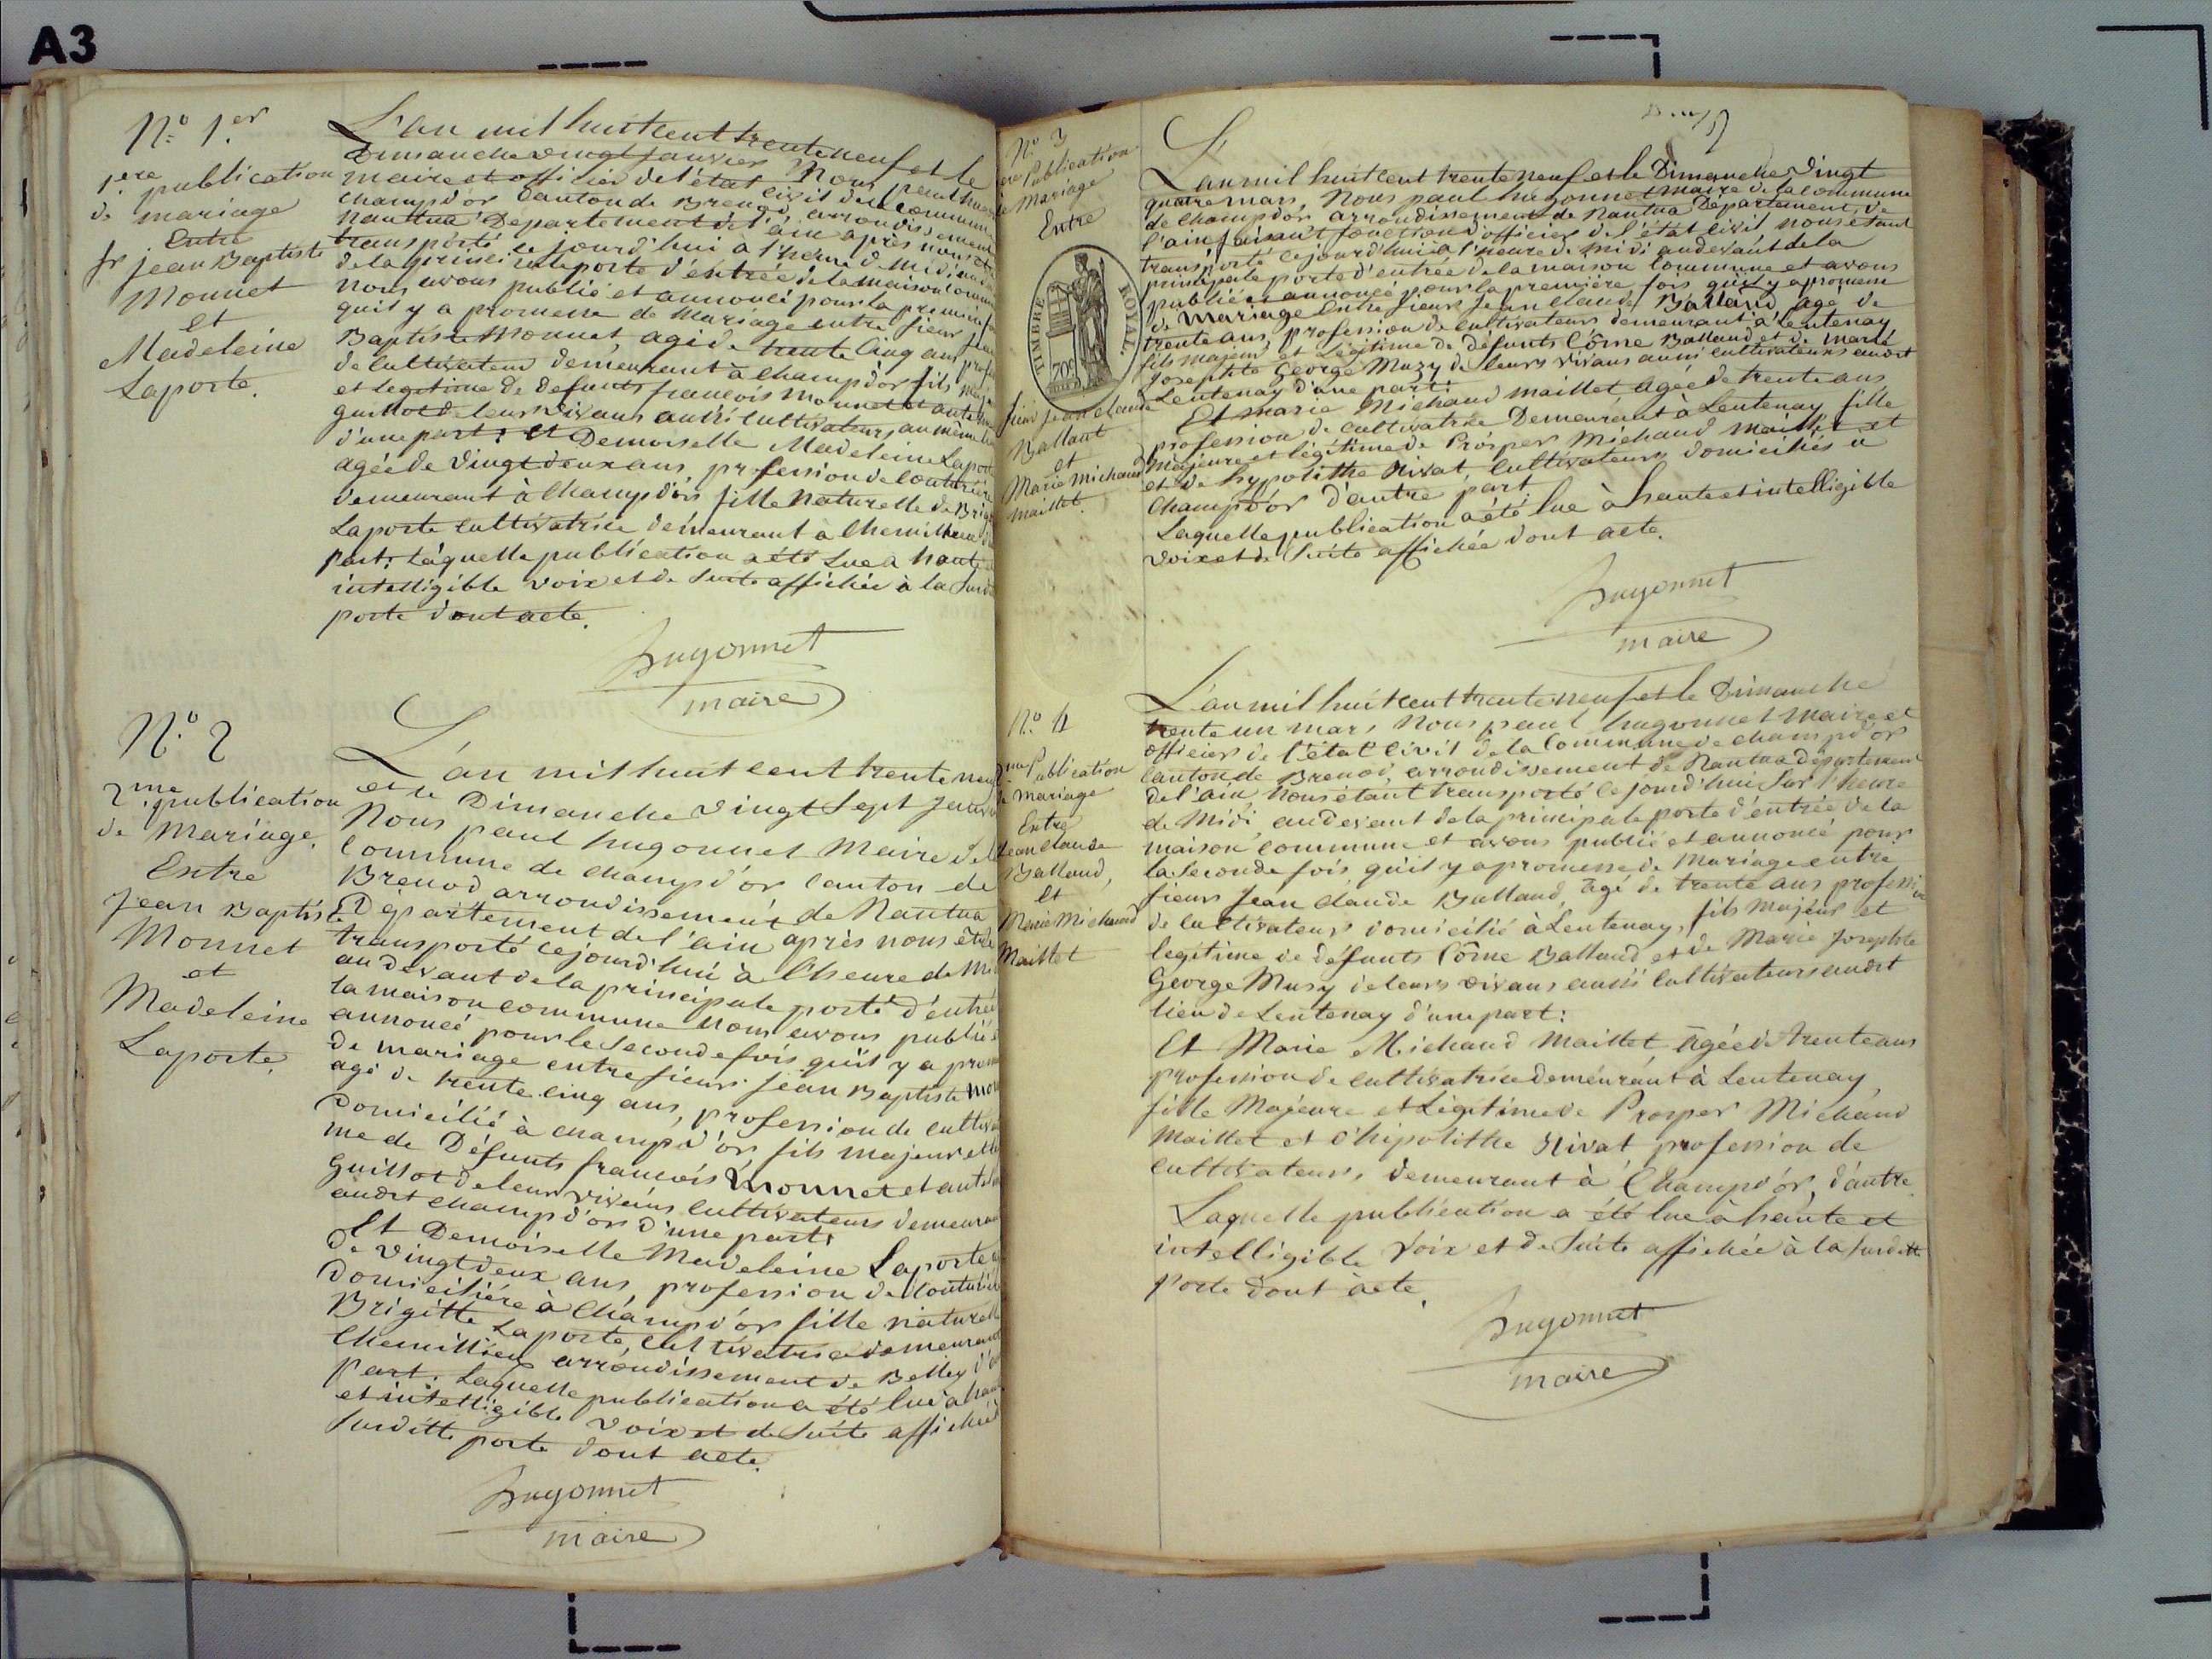 A3
N.° 1.er
1.ere publication
de mariage
Entre
sr jean Baptiste
Monnet
et
Madeleine
Laporte.
L'an mil huit cent trente neuf et le
Dimanche vingt janvier Nous paul
maire et officier de l'état civil de la Commune
champd'or Canton de Brenod, arrondissement
nantua Departement de l'ain après nous
transporté ce jourd'hui à l'heure de Midi
de la principale porte d'entrée de la maison
nous avons publié et annoncé pour la premiere
quil y a promesse de Mariage entre sieur
Baptiste Monnet, agé de trente Cinq ans
de Cultivateur demeurant à Champd'or fils
et legitime de defunts francois monnet et
guillot de leurs vivans aussi Cultivateurs au même
d'une part: et Demoiselle Madeleine Laporte
agée de Vingt deux ans, profession de Couturière
demeurant à Champd'or fille Naturelle de
Laporte Cultivatrice demeurant à Chemillieu
Part. Laquelle publication a été Lue a haute
intelligible voix et de Suite affichée à la
porte d'ont acte.
hugonnet
maire
N.° 2
2.me publication
de Mariage.
Entre
Jean Baptiste
Monnet
et
Madeleine
Laporte.
L'an mil huit cent trente
et le Dimanche vingt Sept
Nous paul hugonnet Maire
Commune de champd'or Canton de
Brenod arrondissement de Nantua
Département de l'ain après nous être
transporté ce jourd'hui à l'heure de
au devant de la principale porte d'entrée
la maison commune Nous avons publié
annoncé pour le Seconde fois quil y a
de mariage entre sieurs jean Baptiste
agé de trente cinq ans, profession de
domicilié à Champd'or, fils majeur et
me de Défunts francois Monnet et
Guillot de leurs vivans Cultivateurs
audit Champd'or d'une part:
Et Demoiselle Madeleine Laporte
de vingt deux ans, profession de
domiciliére à Champd'or fille
Brigitte Laporte, Cultivatrice demeurant
Chemillieu arrondissement de Belley
part. Laquelle publication a été lue a
et intelligible voix et de Suite affichée
Susditte porte dont acte.
hugonnet
maire
N.° 3
Publication
mariage
Entre
TIMBRE ROYAL.
70c
Sieur jean claude
Balland
et
Marie Michaud
Maillet.
L'an mil huit cent trente neuf et le Dimanche vingt
quatre mars, Nous paul hugonnet maire de la commune
de Champd'or arrondissement de Nantua Département de
l'ain faisant fonction d'officier de l'état civil nous étant
transporté ce jourd'hui à l'heure de midi au devant de la
principale porte d'entrée de la maison Commune et avons
publié et annoncé pour la première fois quil y a promesse
de Mariage entre sieurs Jean claude Balland agé de
trente ans, profession de cultivateurs demeurant à Lentenay
fils majeur et Légitime de défunts Côme Balland et de Marie
josephte George Muzy de leurs vivans aussi Cultivateurs audit
Lentenay d'une part:
Et marie Michaud maillet agée de trente ans
profession de cultivatrice Demeurant à Lentenay fille
majeure et légitime de Prosper Michaud maillet et
et de hypolithe Nivat Cultivateurs domiciliés à
Champd'or d'autre part
Laquelle publication a été lue à haute et intelligible
voix et de Suite affichée dont acte.
hugonnet
maire
N.° 4
Publication
mariage
Entre
jean claude
Balland,
et
Marie Michaud
Maillet
L'an mil huit cent trente neuf et le Dimanche
trente un mars Nous paul hugonnet Maire et
officier de l'état civil de la Commune de champd'or
Canton de Brenod, arrondissement de Nantua Département
de l'ain, Nous étant transporté ce jourd'hui Sur l'heure
de Midi au devant de la principale porte d'entrée de la
maison commune et avons publié et annoncé pour
la Seconde fois quil y a promesse de Mariage entre
sieurs Jean claude Balland, agé de trente ans profession
de cultivateurs domicilié à Lentenay, fils majeur et
legitime de défunts Côme Balland et de Marie Josephte
George Muzy de leurs vivans aussi Cultivateurs audit
lieu de Lentenay d'une part:
Et Marie Michaud Maillet agée de trente ans
profession de cultivatrice demeurant à Lentenay
fille Majeure et Légitime de Prosper Michaud
Maillet et d'hipolithe Nivat profession de
cultivateurs, demeurant à Champd'or, d'autre
Laquelle publication a été lue à haute et
intelligible Voix et de Suite affichée à la susditte
Porte dont acte.
hugonnet
maire